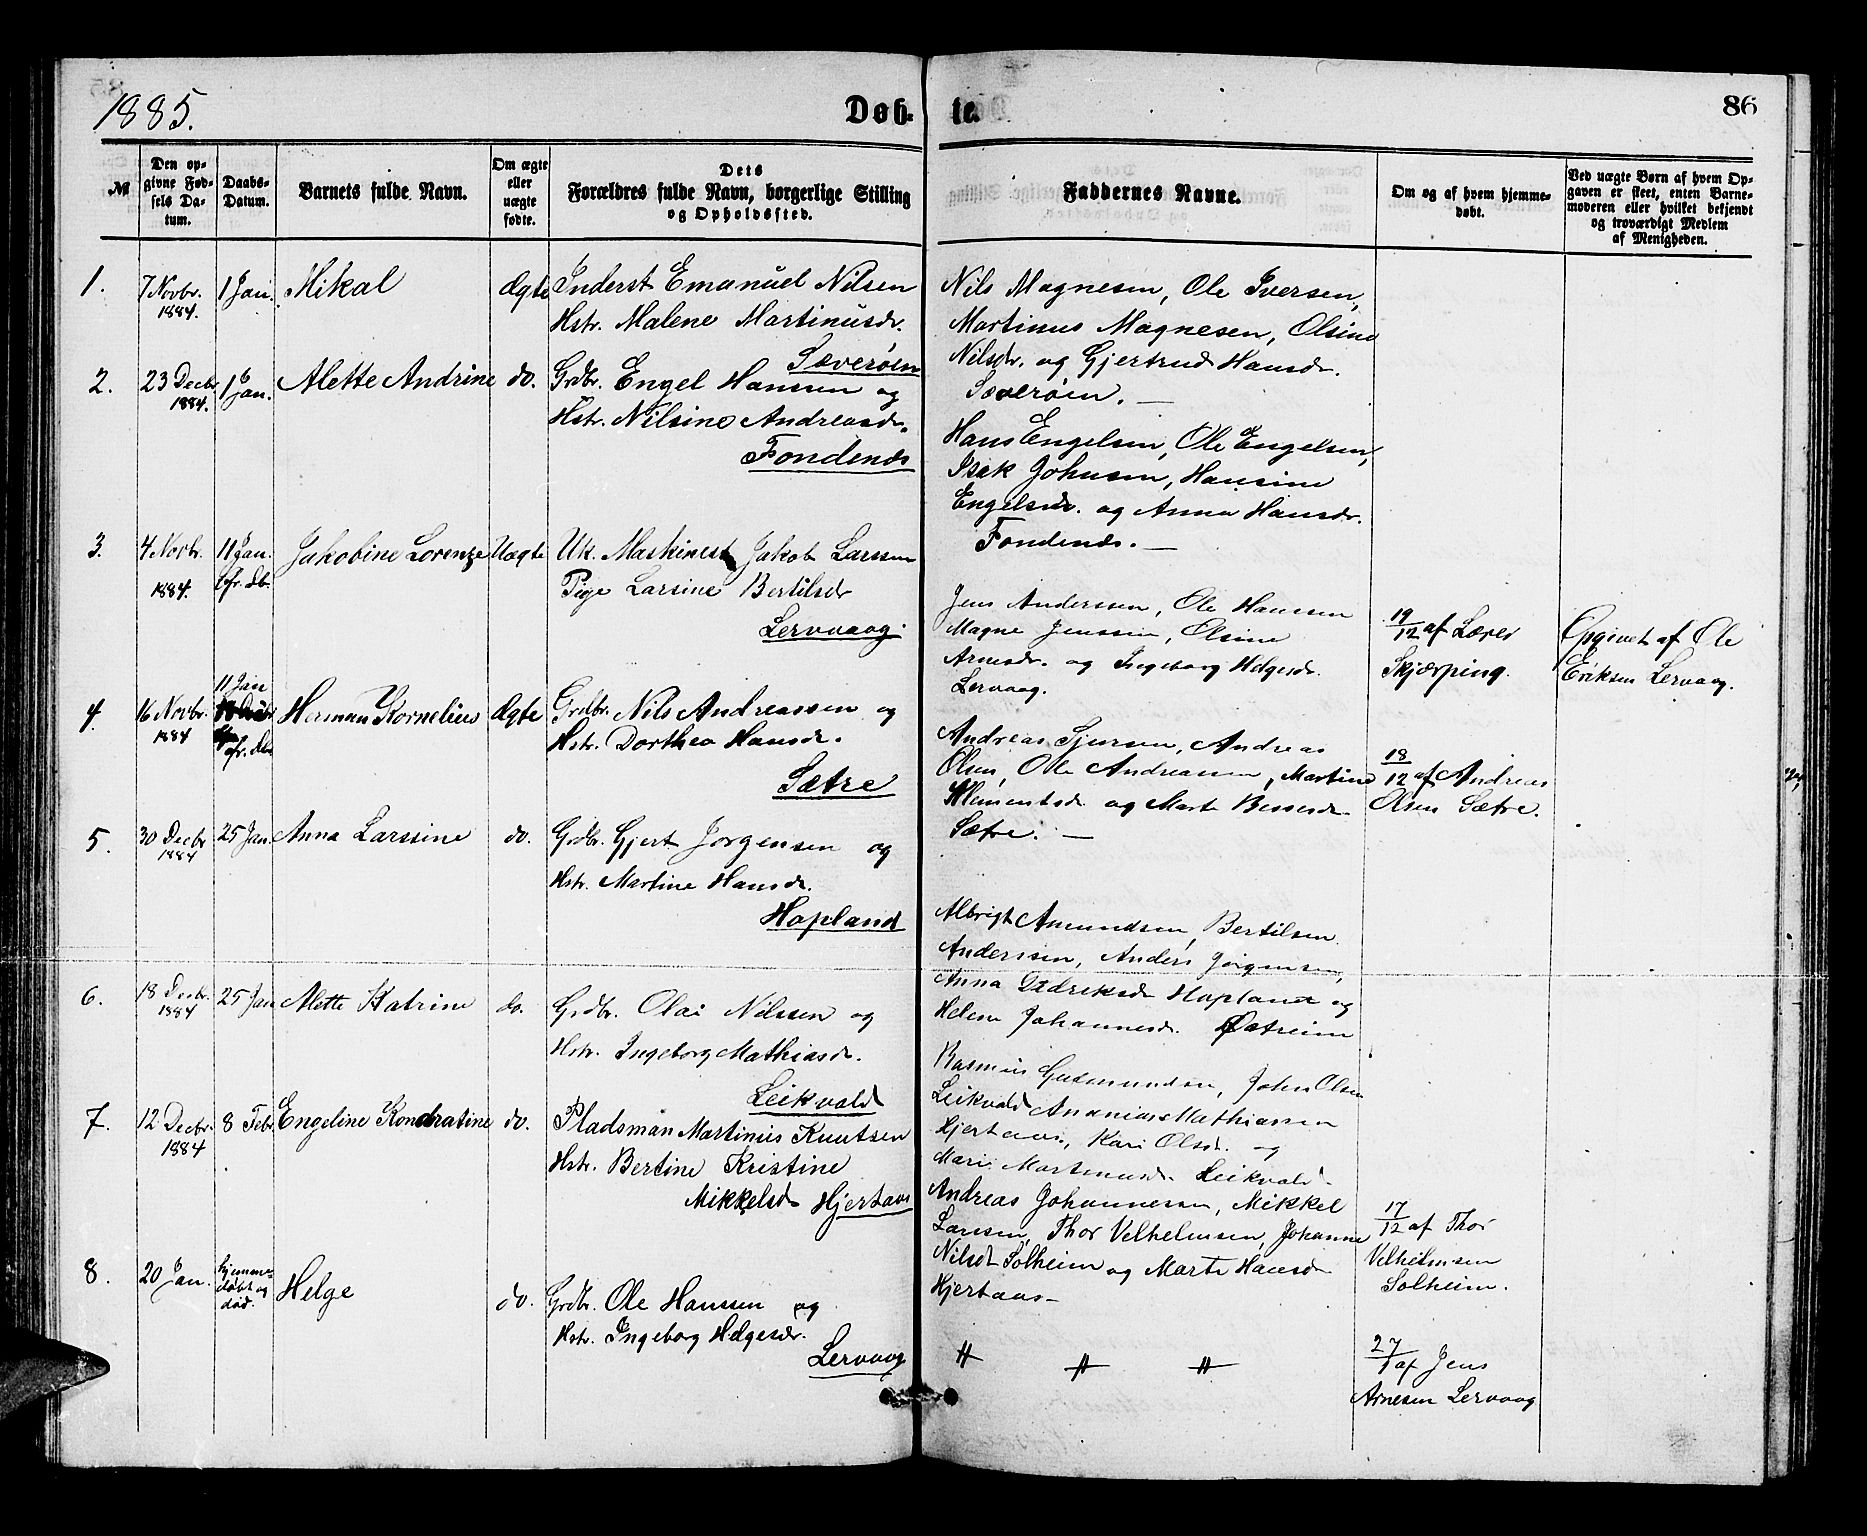 1885.
Døb-
te.
86
№
Den op-
givne Fød-
sels Da-
tum.
Daabs-
Datum.
Barnets fulde Navn.
Om ægte
eller
uægte
fødte.
Dets
Forældres fulde Navn, borgerlige Stilling
og Opholdssted.
Faddernes Navne.
Om og af hvem hjemme-
døbt.
Ved uægte Børn af hvem Op-
gaven er skeet, enten Barne-
moderen eller hvilket bekjendt
og troværdigt Medlem
af Menigheden.
1.
7 Novbr.
1884.
1 Jan.
Mikal
Ægte
Inderst Emanuel Nilsen
Hstr. Malene Martinusdr.
Sæverøen
Nils Magnesen, Ole Iversen,
Martinus Magnesen, Olsine
Nilsdr. og Gjertrud Hansdr.
Sæverøen. —
2.
23 Decbr
1884.
Jan.
Alette Andrine
do.
Grdbr. Engel Hanssen og
Hstr. Nilsine Andreasdr.
Fondenæs
Hans Engelsen, Ole Engelsen,
Isak Johnsen, Hansine
Engelsdr. og Anna Hansdr.
Fondenæs. —
3.
4 Novbr.
1884.
11 Jan.
fr. db.
Jakobine Lorenze
Uægte
Uk. Maskinest Jakob Larssen
Pige Larsine Bertilsdr
Lervaag.
Jens Anderssen, Ole Hanssen
Magne Jenssen, Olsine
Arnesdr. og Ingeborg Helgesdr.
Lervaag.
19/12 af Lærer
Skjærping.
Opgivet af Ole
Eriksen Lervaag.
4.
16 Novbr.
1884
11 Jan
fr. db
Herman Kornelius
Ægte
Grdbr. Nils Andreassen og
Hstr. Dorthea Hansdr.
Sætre
Andreas Sjursen, Andreas
Olsen, Ole Andreassen, Martine
Klementsdr og Marte Bessesdr
Sætre. —
18/12 af Andreas
Olsen Sætre.
5.
30 Decbr
1884
25 Jan.
Anna Larssine
do.
Grdbr. Gjert Jørgensen og
Hstr. Martine Hansdr.
Hopland
Albrigt Amundsen, Bertilsen
Anderssen, Anders Jørgensen,
Anna Didriksdr Hopland og
Helene Johannesdr. Østreim
6.
18 Decbr.
1884
25 Jan
Alette Katrine
do.
Grdbr. Olai Nilssen og
Hstr. Ingeborg Mathiasdr.
Leikvald
Rasmus Gudmundsen, John Olsen
Leikvald Ananias Mathiassen
Hjertaas, Kari Olsdr. og
Mari Martinusdr. Leikvald
7.
12 Decbr.
1884
8 Febr.
Engeline Kondratine
do.
Pladsman Martinus Knutsen
Hstr. Bertine Kristine
Mikkelsdr Hjertaas
Andreas Johannessen, Mikkel
Larssen, Thor Velhelmsen, Johanne
Nilsdr Solheim og Marte Hansdr
Hjertaas —
17/12 af Thor
Velhelmsen
Solheim.
8.
20 Jan.
hjemme-
døbt og
død.
Helge
do.
Grdbr. Ole Hanssen og
Hstr. Ingeborg Helgesdr.
Lervaag
〃 〃 〃
27/1 af Jens
Arnesen Lervaag